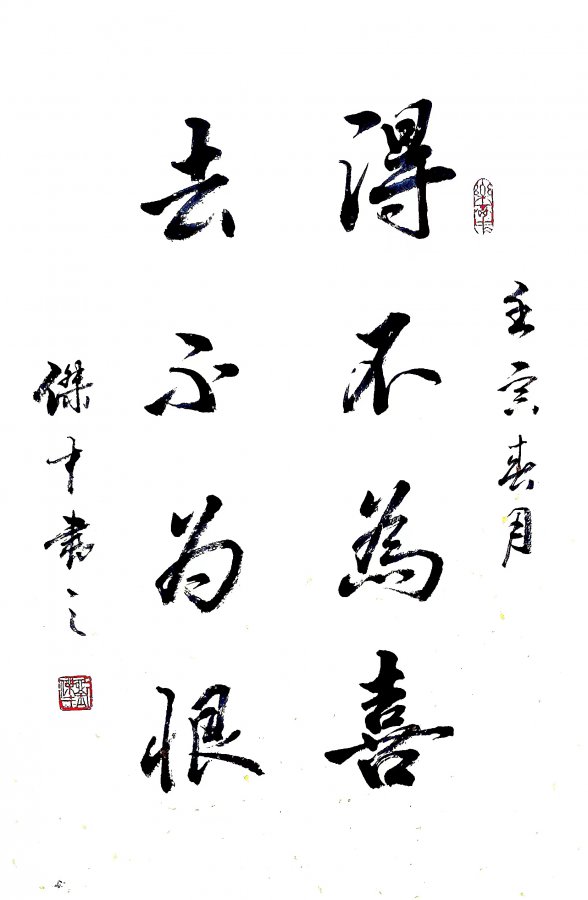 壬寅春月
得不為喜
去不为恨
傑才書之